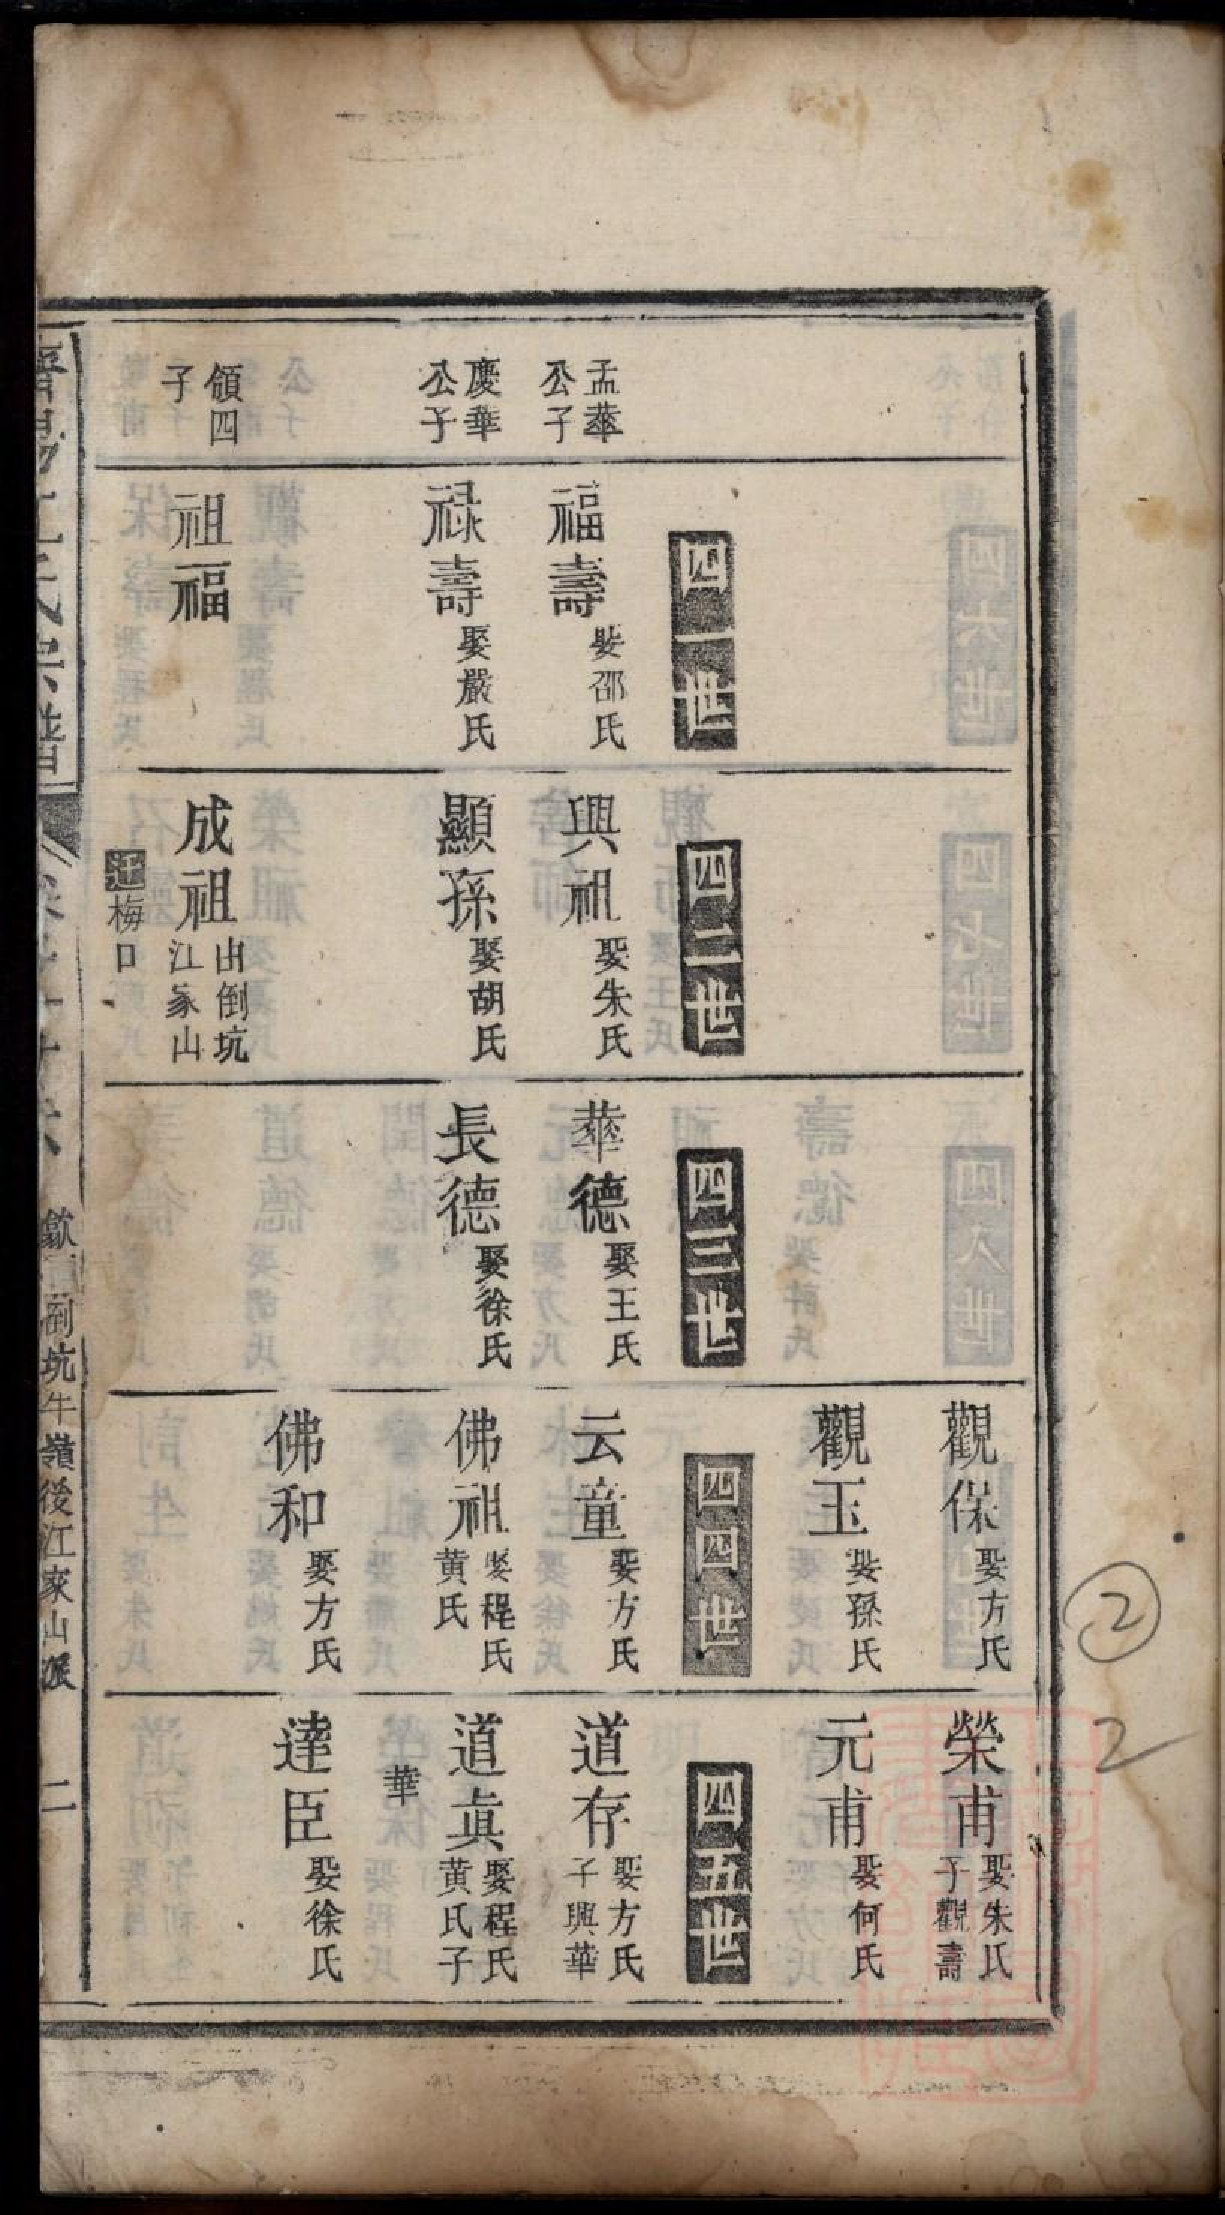 觀保娶方氏
榮甫娶朱氏子觀壽
觀玉娶孫氏
元甫娶何氏
四一世
四二世
四三世
四四世
四五世
孟華公子
福壽娶邵氏
興祖娶朱氏
華德娶王氏
云童娶方氏
道存娶方氏子興華
慶華公子
祿壽娶嚴氏
顯孫娶胡氏
長德娶徐氏
佛祖娶程氏黃氏
道真娶程氏黃氏子華
佛和娶方氏
達臣娶徐氏
領四子
祖福
成祖出倒坑江家山
迁梅口
江氏宗譜
歙南倒坑牛嶺後江家山派
二
②
2